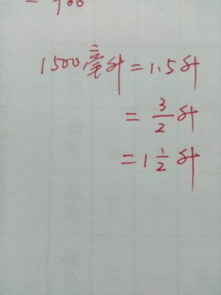 = 700
1500毫升=1.5升
= 3/2 升
= 1 1/2 升